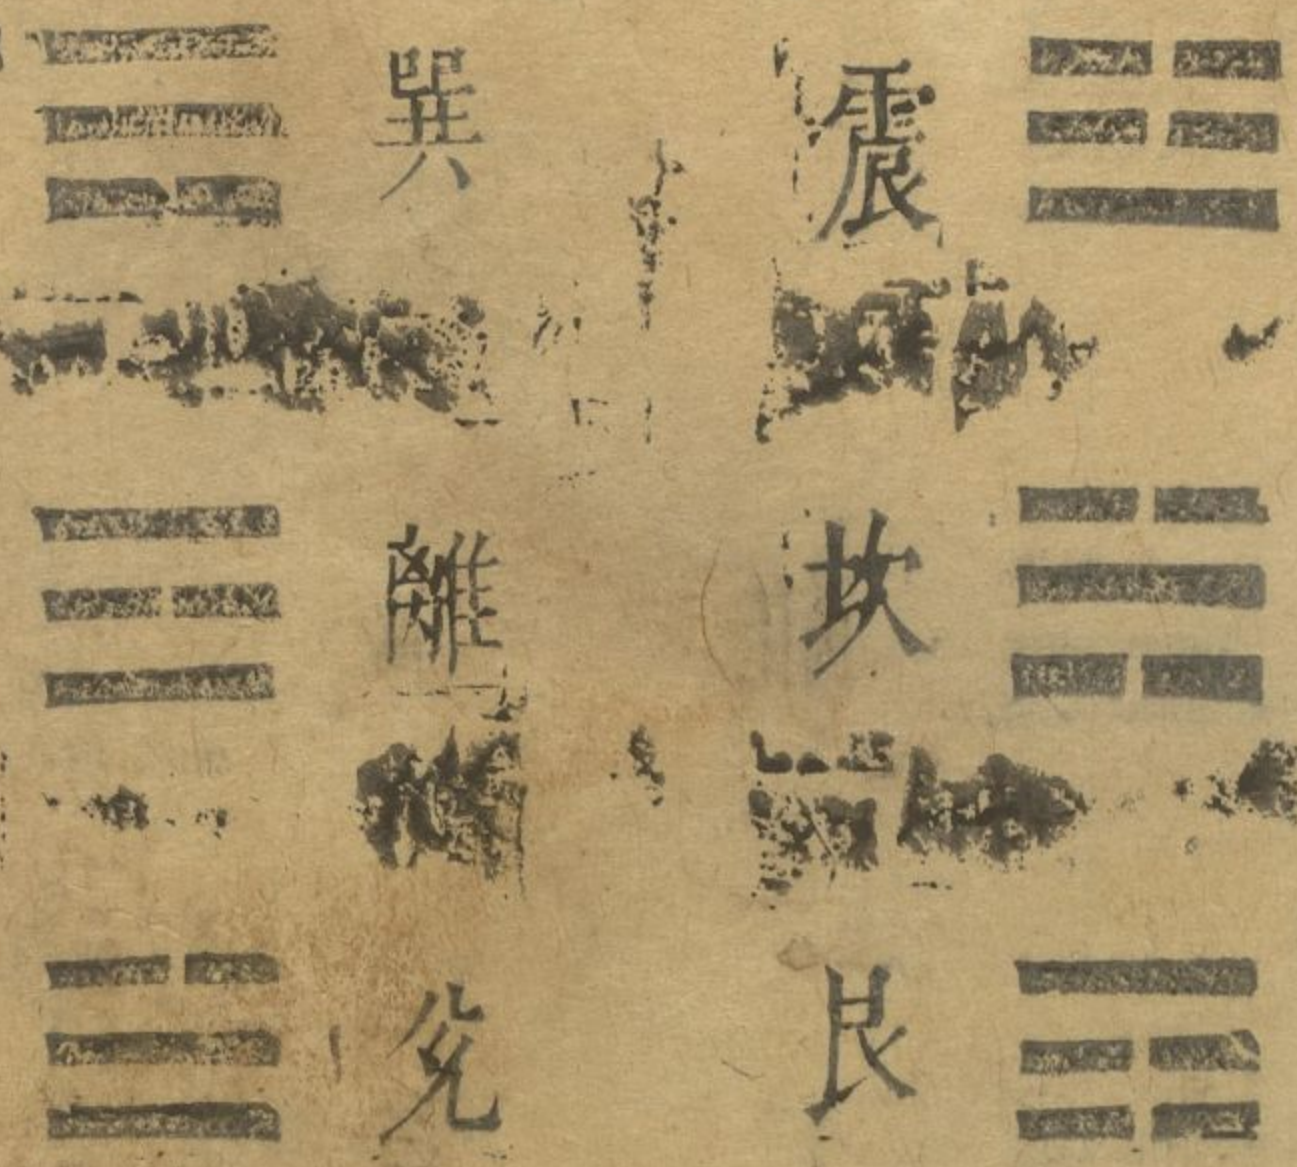 震
坎
艮
巽
離
兊